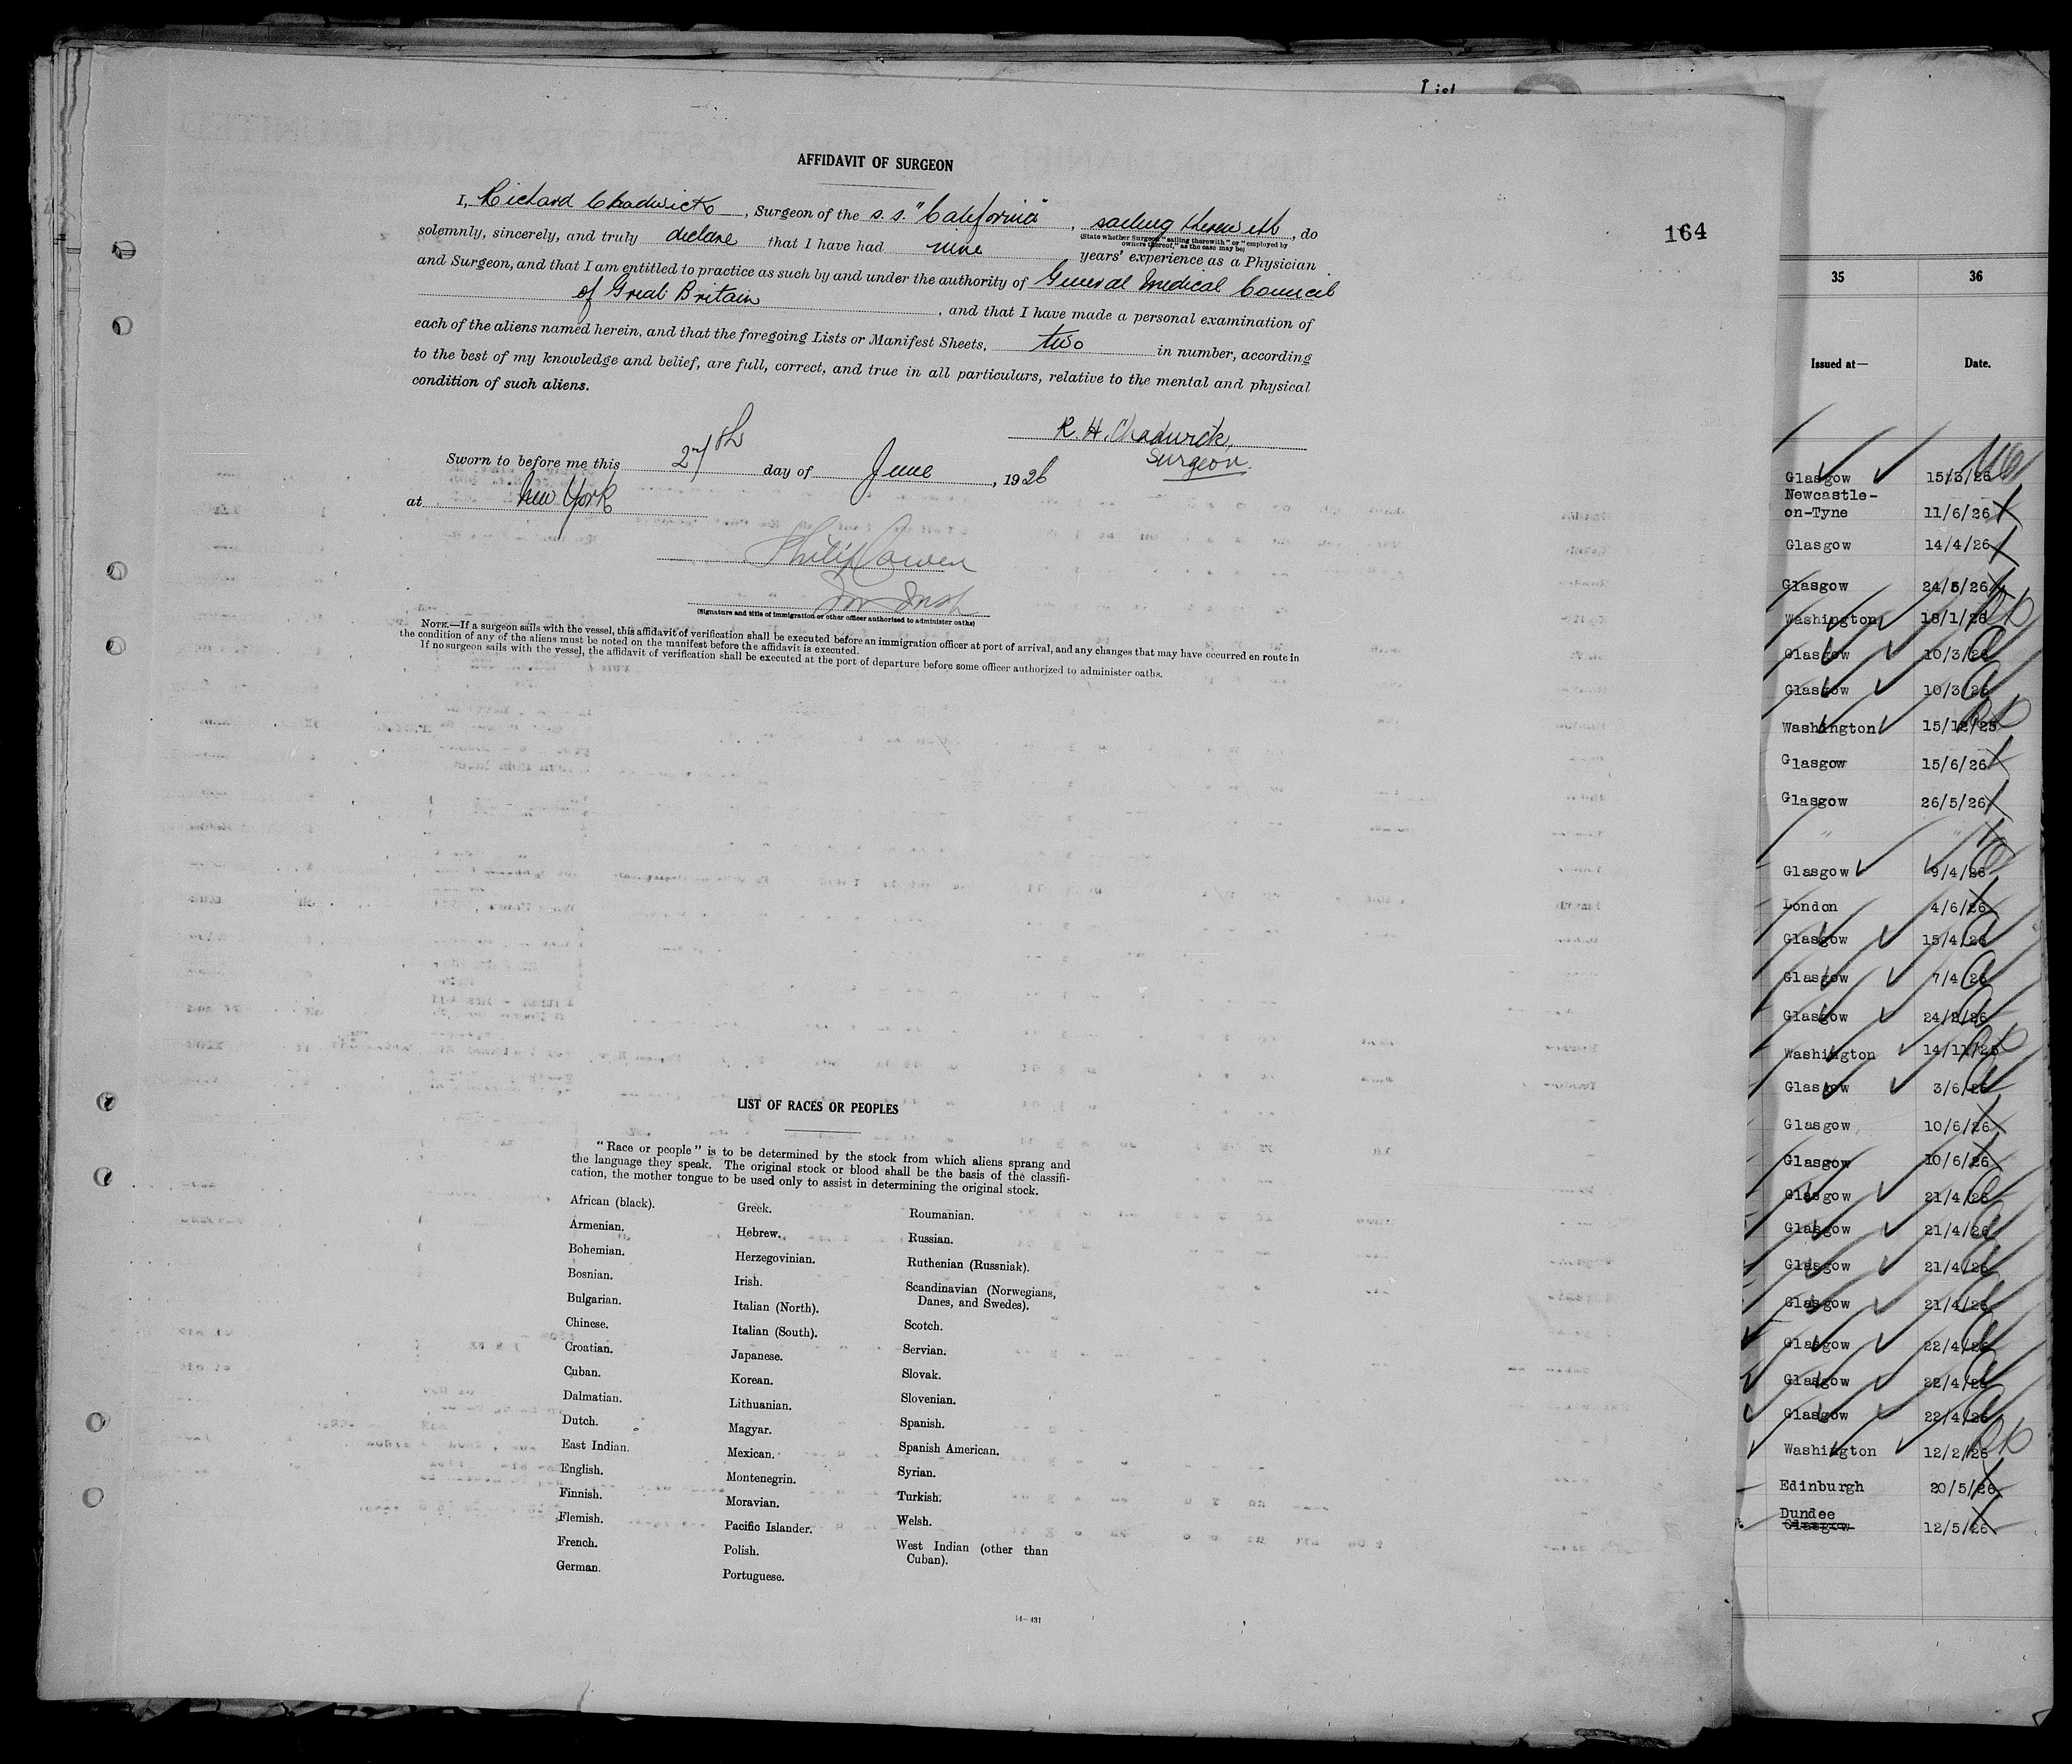 List
AFFIDAVIT OF SURGEON
164
I, Richard Chadwick, Surgeon of the s.s. "California", sailing therewith, do
(State whether Surgeon "sailing therewith" or "employed by
owners thereof," as the case may be)
solemnly, sincerely, and truly declare that I have had nine years' experience as a Physician
and Surgeon, and that I am entitled to practice as such by and under the authority of General Medical Council
of Great Britain, and that I have made a personal examination of
each of the aliens named herein, and that the foregoing Lists or Manifest Sheets, two in number, according
to the best of my knowledge and belief, are full, correct, and true in all particulars, relative to the mental and physical
condition of such aliens.
R. H. Chadwick,
Surgeon.
Sworn to before me this 27th day of June, 1926
at New York
Philip Cowen
(Signature and title of immigration or other officer authorized to administer oaths)
NOTE.—If a surgeon sails with the vessel, this affidavit of verification shall be executed before an immigration officer at port of arrival, and any changes that may have occurred en route in
the condition of any of the aliens must be noted on the manifest before the affidavit is executed.
If no surgeon sails with the vessel, the affidavit of verification shall be executed at the port of departure before some officer authorized to administer oaths.
LIST OF RACES OR PEOPLES
"Race or people" is to be determined by the stock from which aliens sprang and
the language they speak. The original stock or blood shall be the basis of the classifi-
cation, the mother tongue to be used only to assist in determining the original stock.
African (black).
Armenian.
Bohemian.
Bosnian.
Bulgarian.
Chinese.
Croatian.
Cuban.
Dalmatian.
Dutch.
East Indian.
English.
Finnish.
Flemish.
French.
German.
Greek.
Hebrew.
Herzegovinian.
Irish.
Italian (North).
Italian (South).
Japanese.
Korean.
Lithuanian.
Magyar.
Mexican.
Montenegrin.
Moravian.
Pacific Islander.
Polish.
Portuguese.
Roumanian.
Russian.
Ruthenian (Russniak).
Scandinavian (Norwegians,
Danes, and Swedes).
Scotch.
Servian.
Slovak.
Slovenian.
Spanish.
Spanish American.
Syrian.
Turkish.
Welsh.
West Indian (other than
Cuban).
14—431
35 36
Issued at— Date.
Glasgow 15/3/26
Newcastle-
on-Tyne 11/6/26
Glasgow 14/4/26
Glasgow 24/5/26
Washington 18/1/26
Glasgow 10/3/26
Glasgow 10/3/26
Washington 15/12/25
Glasgow 15/6/26
Glasgow 26/5/26
" "
Glasgow 9/4/26
London 4/6/26
Glasgow 15/4/26
Glasgow 7/4/26
Glasgow 24/2/26
Washington 14/11/25
Glasgow 3/6/26
Glasgow 10/6/26
Glasgow 10/6/26
Glasgow 21/4/26
Glasgow 21/4/26
Glasgow 21/4/26
Glasgow 21/4/26
Glasgow 22/4/26
Glasgow 22/4/26
Glasgow 22/4/26
Washington 12/2/26
Edinburgh 20/5/26
Dundee
Glasgow 12/5/26